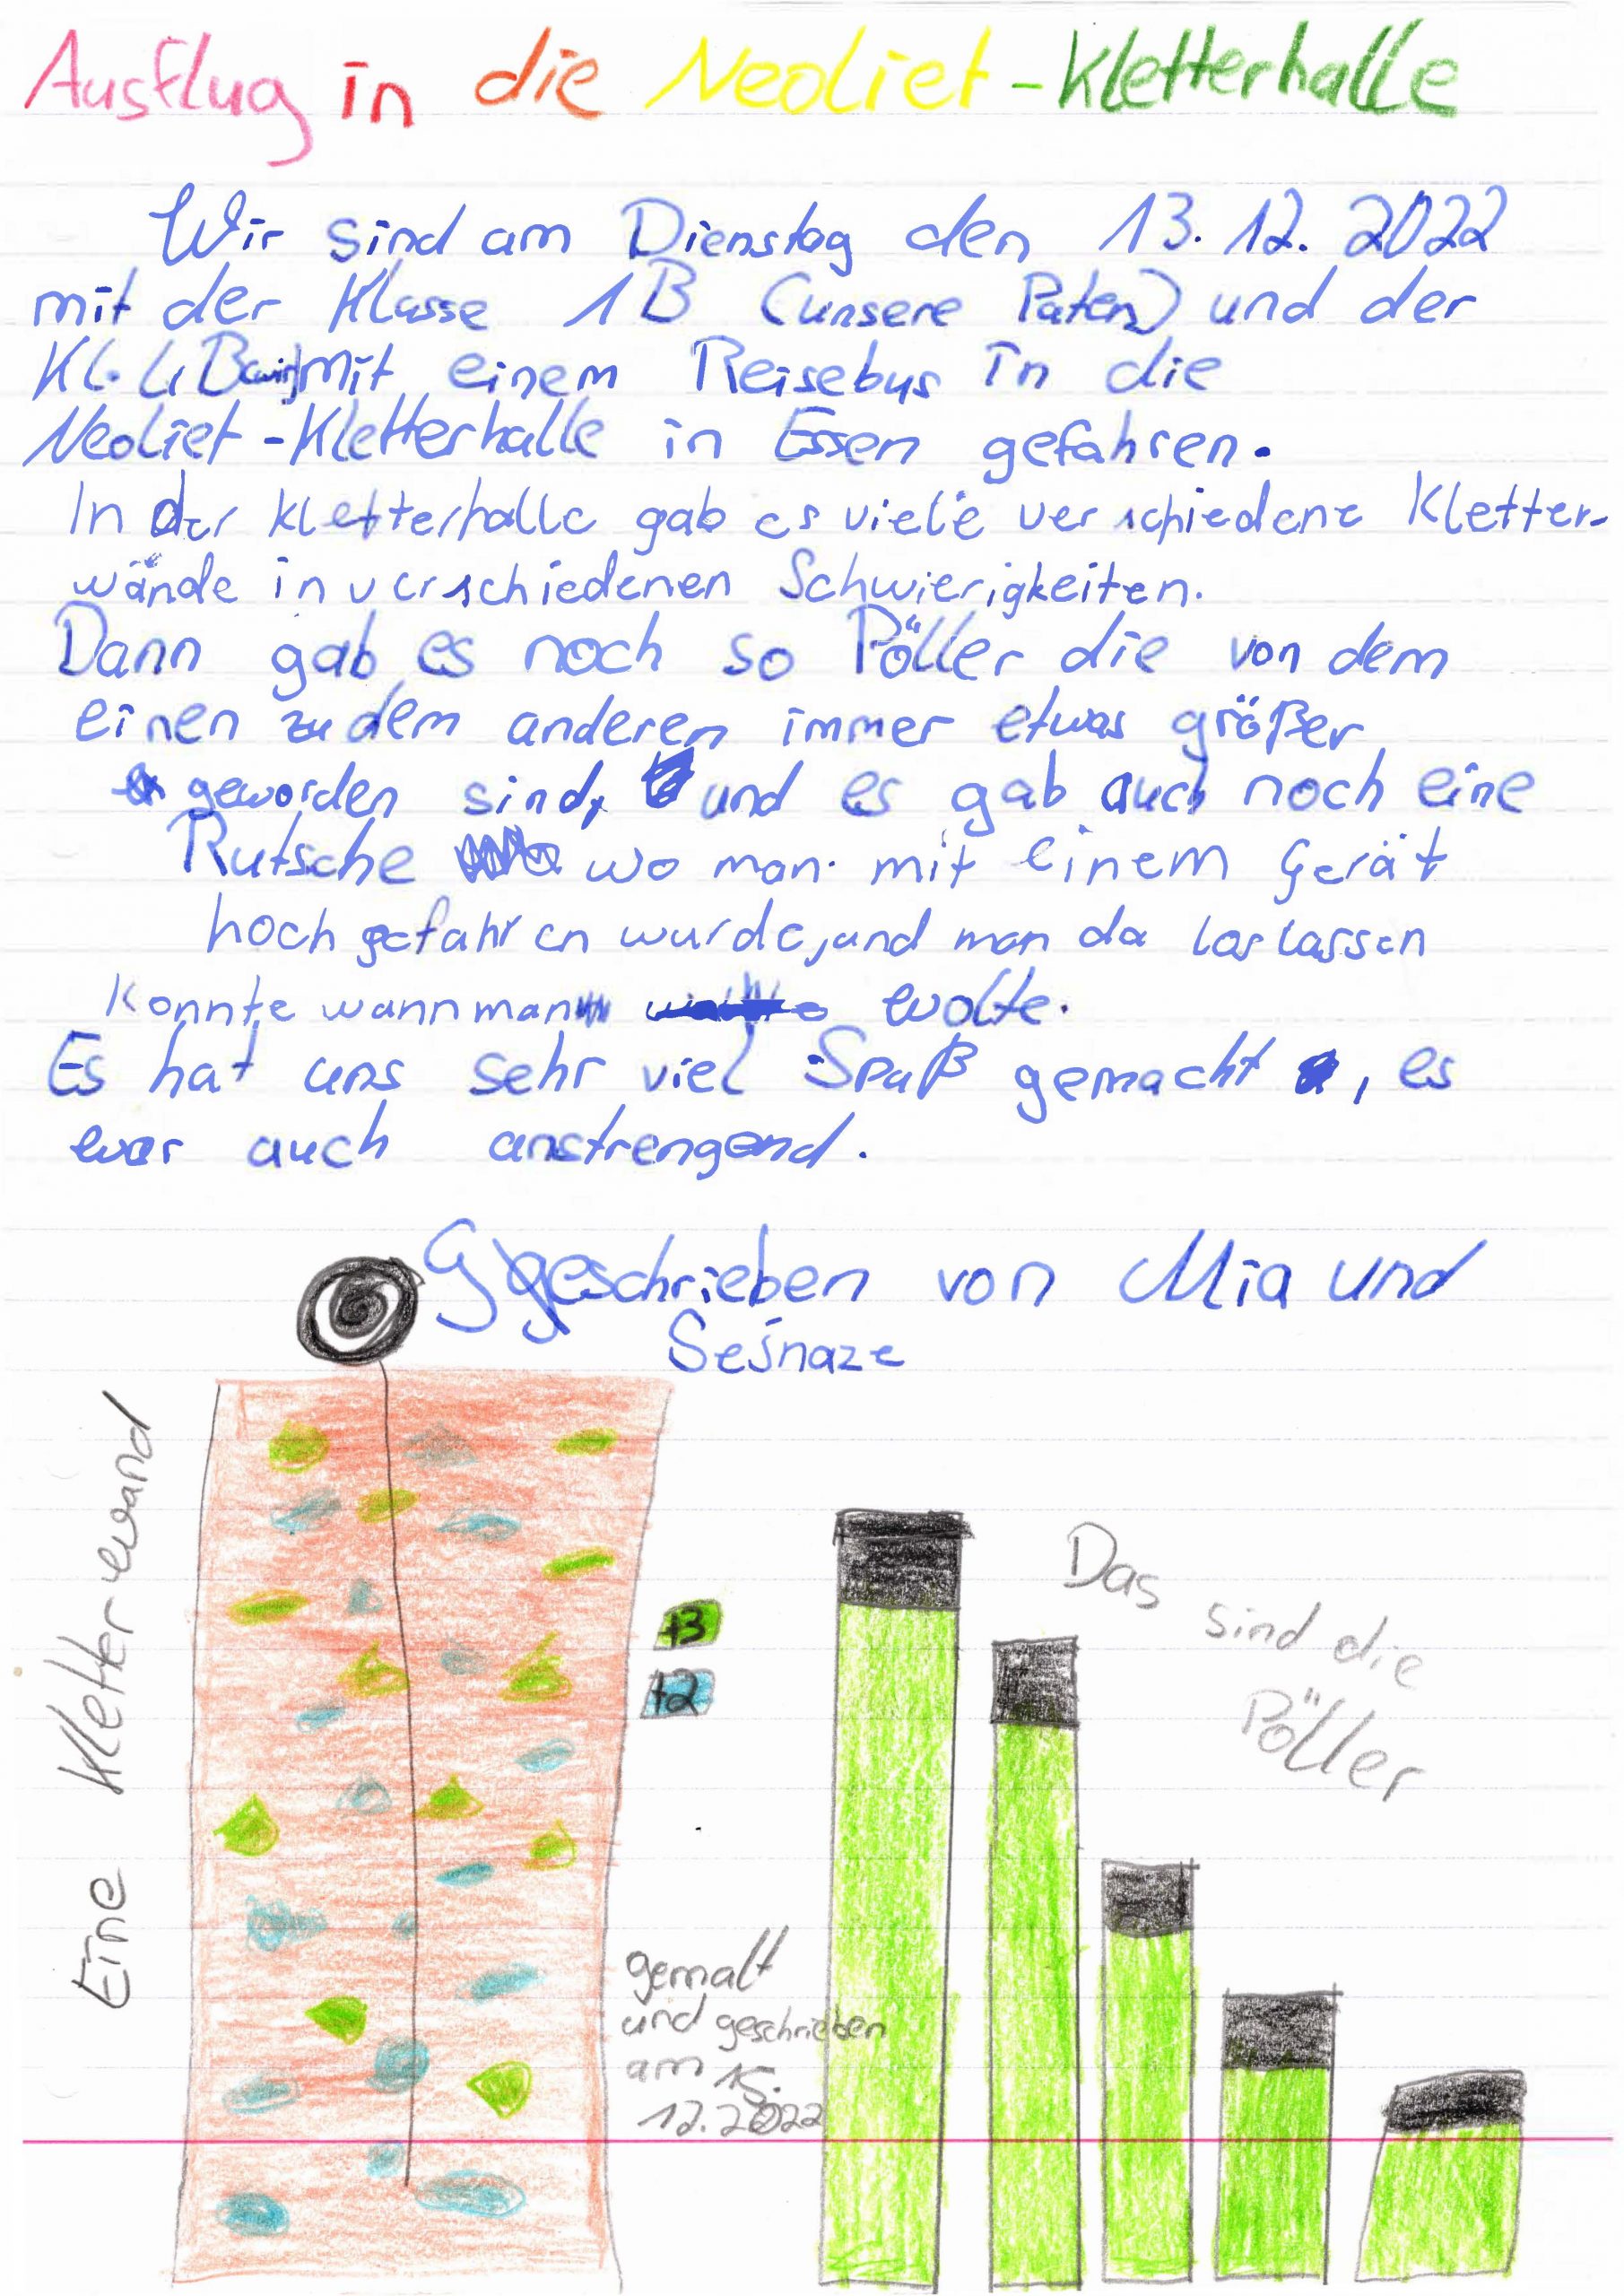 Ausflug in die Neoliet-Kletterhalle
Wir sind am Dienstag den 13.12.2022
mit der Klasse 1B (unsere Paten) und der
Kl. 4B(wir) mit einem Reisebus in die
Neoliet-Kletterhalle in Essen gefahren.
In der Kletterhalle gab es viele verschiedene Kletter-
wände in verschiedenen Schwierigkeiten.
Dann gab es noch so Pöller die von dem
einen zu dem anderen immer etwas größer
geworden sind, und es gab auch noch eine
Rutsche wo man mit einem Gerät
hoch gefahren wurde, und man da loslassen
konnte wann man wolte.
Es hat uns sehr viel Spaß gemacht, es
war auch anstrengend.
Geschrieben von Mia und
Eine Kletterwand
+3
+2
Das sind die
Pöller
gemalt
und geschrieben
am 15.
12.2022